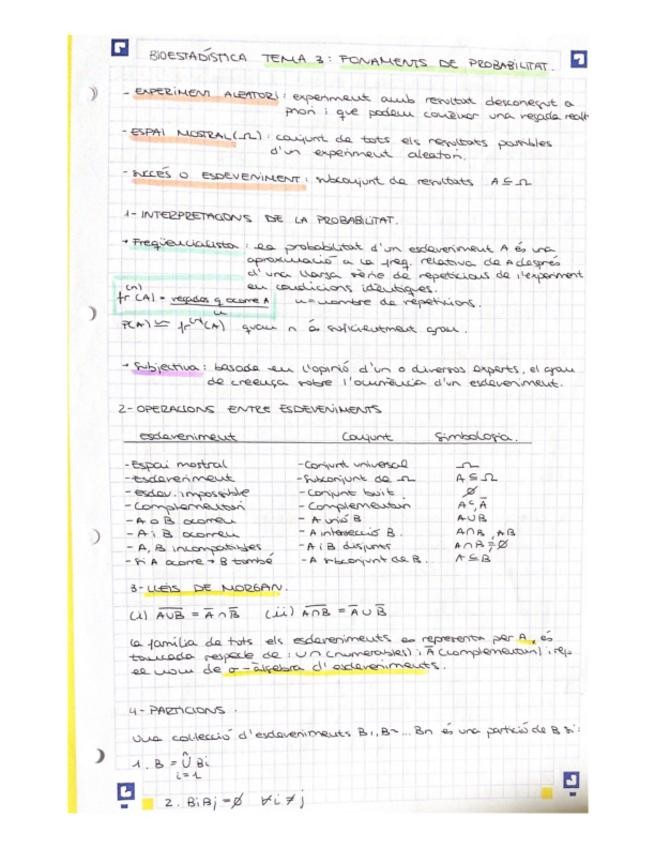 BIOESTADÍSTICA TEMA 3: FONAMENTS DE PROBABILITAT.
- EXPERIMENT ALEATORI: experiment amb resultat desconegut a
priori i que podem conèixer una vegada realit
- ESPAI MOSTRAL (Ω): conjunt de tots els resultats possibles
d'un experiment aleatori.
- SUCCÉS O ESDEVENIMENT: subconjunt de resultats A ⊆ Ω
1- INTERPRETACIONS DE LA PROBABILITAT.
→ Freqüencialista: la probabilitat d'un esdeveniment A és una
aproximació a la freq. relativa de A després
d'una llarga sèrie de repeticions de l'experiment
en condicions idèntiques.
fr⁽ⁿ⁾(A) = vegades q ocorre A / n n = nombre de repeticions.
P(A) ≃ fr⁽ⁿ⁾(A) quan n és suficientment gran.
→ Subjectiva: basada en l'opinió d'un o diversos experts, el grau
de creença sobre l'ocurrència d'un esdeveniment.
2- OPERACIONS ENTRE ESDEVENIMENTS
esdeveniment Conjunt Simbologia.
- Espai mostral - Conjunt universal Ω
- esdeveniment - Subconjunt de Ω A ⊆ Ω
- esdev. impossible - conjunt buit. ∅
- Complementari - Complementari Aᶜ, Ā
- A o B ocorren - A unió B A∪B
- A i B ocorren - A intersecció B. A∩B, AB
- A, B incompatibles - A i B disjunts A∩B=∅
- Si A ocorre → B també - A subconjunt de B. A ⊆ B
3- LLEIS DE MORGAN.
(i) A̅∪̅B̅ = Ā ∩ B̅ (ii) A̅∩̅B̅ = Ā ∪ B̅
La família de tots els esdeveniments es representa per A, és
tancada respecte de: ∪ ∩ (numerables) i Ā (complementari) i rep
el nom de σ-àlgebra d'esdeveniments.
4- PARTICIONS.
Una col·lecció d'esdeveniments B₁, B₂ ... Bn és una partició de B si:
1. B = ⋃ⁿᵢ₌₁ Bi
2. BiBj = ∅ ∀i ≠ j